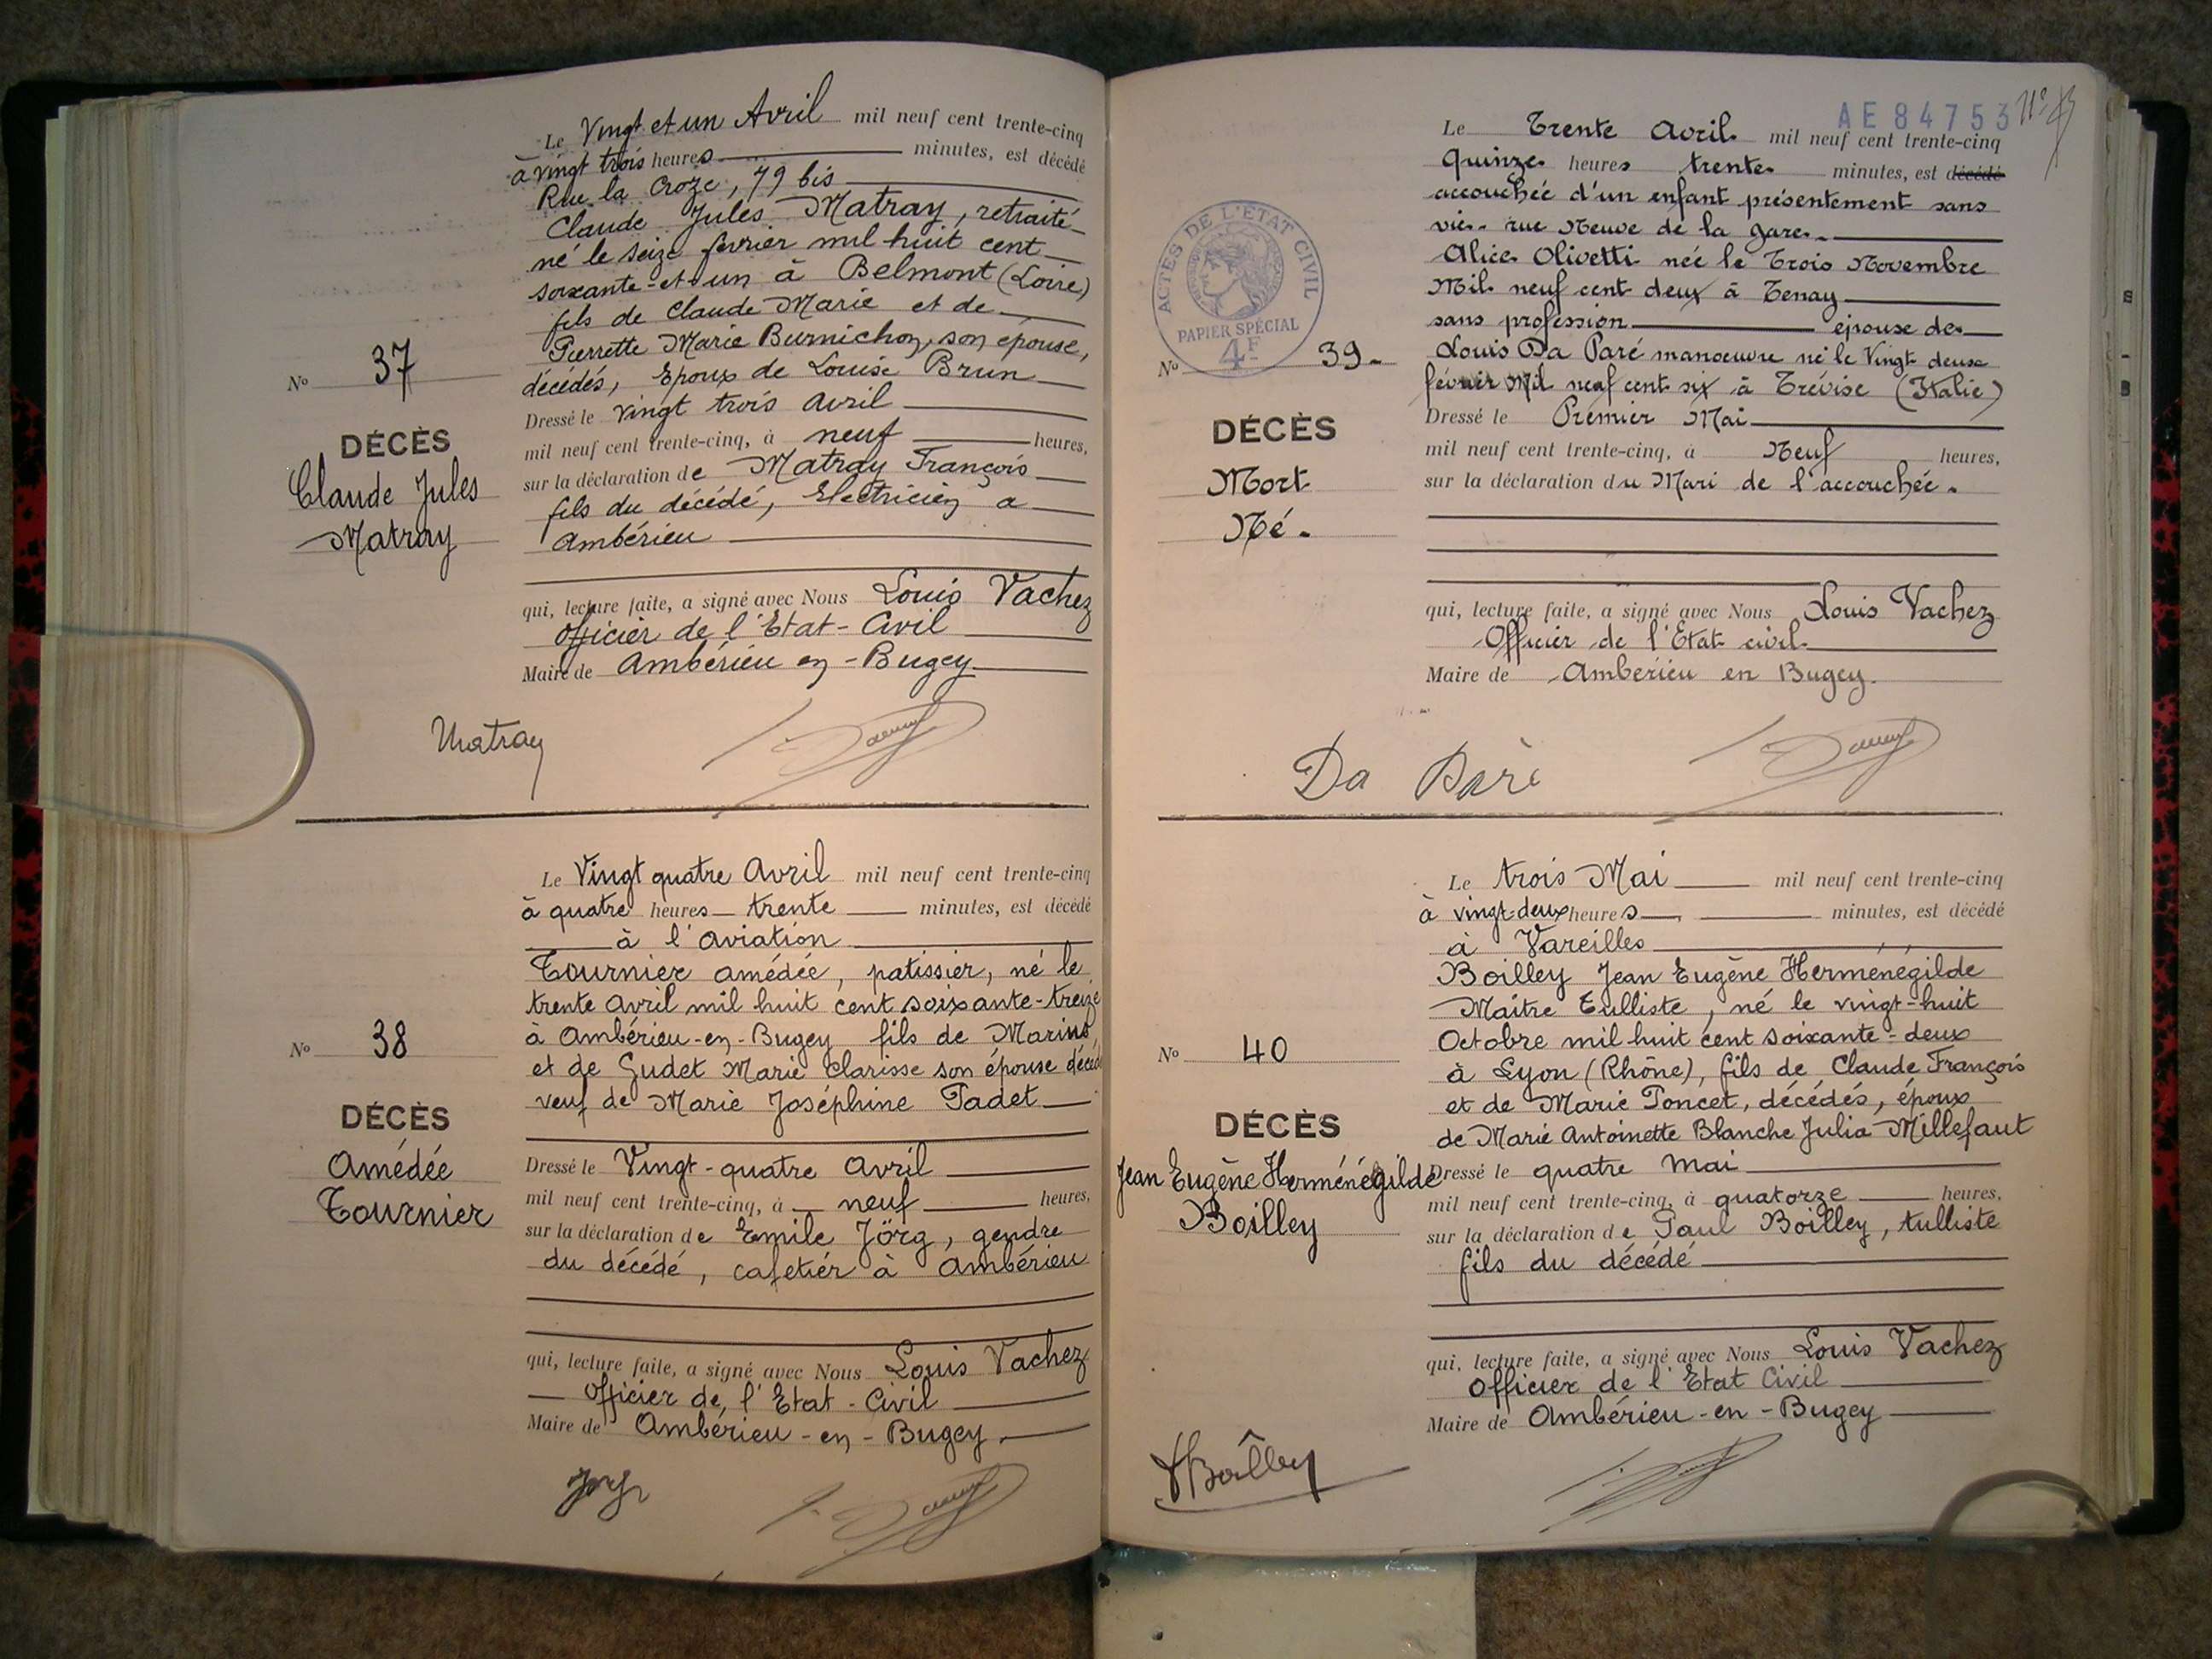 Le Vingt et un Avril mil neuf cent trente-cinq
à vingt trois heures minutes, est décédé
Rue la Croze, 79 bis
Claude Jules Matray, retraité
né le seize février mil huit cent
soixante-et-un à Belmont (Loire)
fils de Claude Marie et de
Pierrette Marie Burnichon, son épouse,
décédés, Epoux de Louise Brun
Dressé le vingt trois Avril
mil neuf cent trente-cinq, à neuf heures,
sur la déclaration de Matray François
fils du décédé, Electricien à
Ambérieu
qui, lecture faite, a signé avec Nous Louis Vachez
Officier de l'Etat-Civil
Maire de Ambérieu en-Bugey
No 37
DÉCÈS
Claude Jules
Matray
Matray
Le Vingt quatre Avril mil neuf cent trente-cinq
à quatre heures trente minutes, est décédé
à l'aviation
Tournier Amédée, patissier, né le
trente Avril mil huit cent soixante-treize
à Ambérieu-en-Bugey fils de Marius
et de Gudet Marie Clarisse son épouse décéd
veuf de Marie Joséphine Tadet
Dressé le Vingt-quatre Avril
mil neuf cent trente-cinq, à neuf heures,
sur la déclaration de Emile Jörg, gendre
du décédé, cafetier à Ambérieu
qui, lecture faite, a signé avec Nous Louis Vachez
Officier de l'Etat-Civil
Maire de Ambérieu-en-Bugey.
No 38
DÉCÈS
Amédée
Tournier
Jörg
AE84753
Le Trente Avril mil neuf cent trente-cinq
quinze heures trente minutes, est décédé
accouchée d'un enfant présentement sans
vie. rue Neuve de la gare.
Alice Olivetti née le Trois Novembre
Mil neuf cent deux à Tenay
sans profession épouse de
Louis Da Paré manoeuvre né le Vingt deux
février Mil neuf cent six à Trévise (Italie)
Dressé le Premier Mai
mil neuf cent trente-cinq, à Neuf heures,
sur la déclaration du Mari de l'accouchée.
qui, lecture faite, a signé avec Nous Louis Vachez
Officier de l'Etat civil
Maire de Ambérieu en Bugey.
ACTES DE L'ÉTAT CIVIL
PAPIER SPÉCIAL
4F
No 39.
DÉCÈS
Mort
Né.
Da Parè
Le trois Mai mil neuf cent trente-cinq
à vingt-deux heures minutes, est décédé
à Vareilles
Boilley Jean Eugène Herménégilde
Maître Tulliste, né le vingt-huit
Octobre mil huit cent soixante-deux
à Lyon (Rhône), fils de Claude François
et de Marie Poncet, décédés, époux
de Marie Antoinette Blanche Julia Millefaut
Dressé le quatre mai
mil neuf cent trente-cinq, à quatorze heures,
sur la déclaration de Paul Boilley, tulliste
fils du décédé
qui, lecture faite, a signé avec Nous Louis Vachez
Officier de l'Etat Civil
Maire de Ambérieu-en-Bugey
No 40
DÉCÈS
Jean Eugène Herménégilde
Boilley
PBoilley